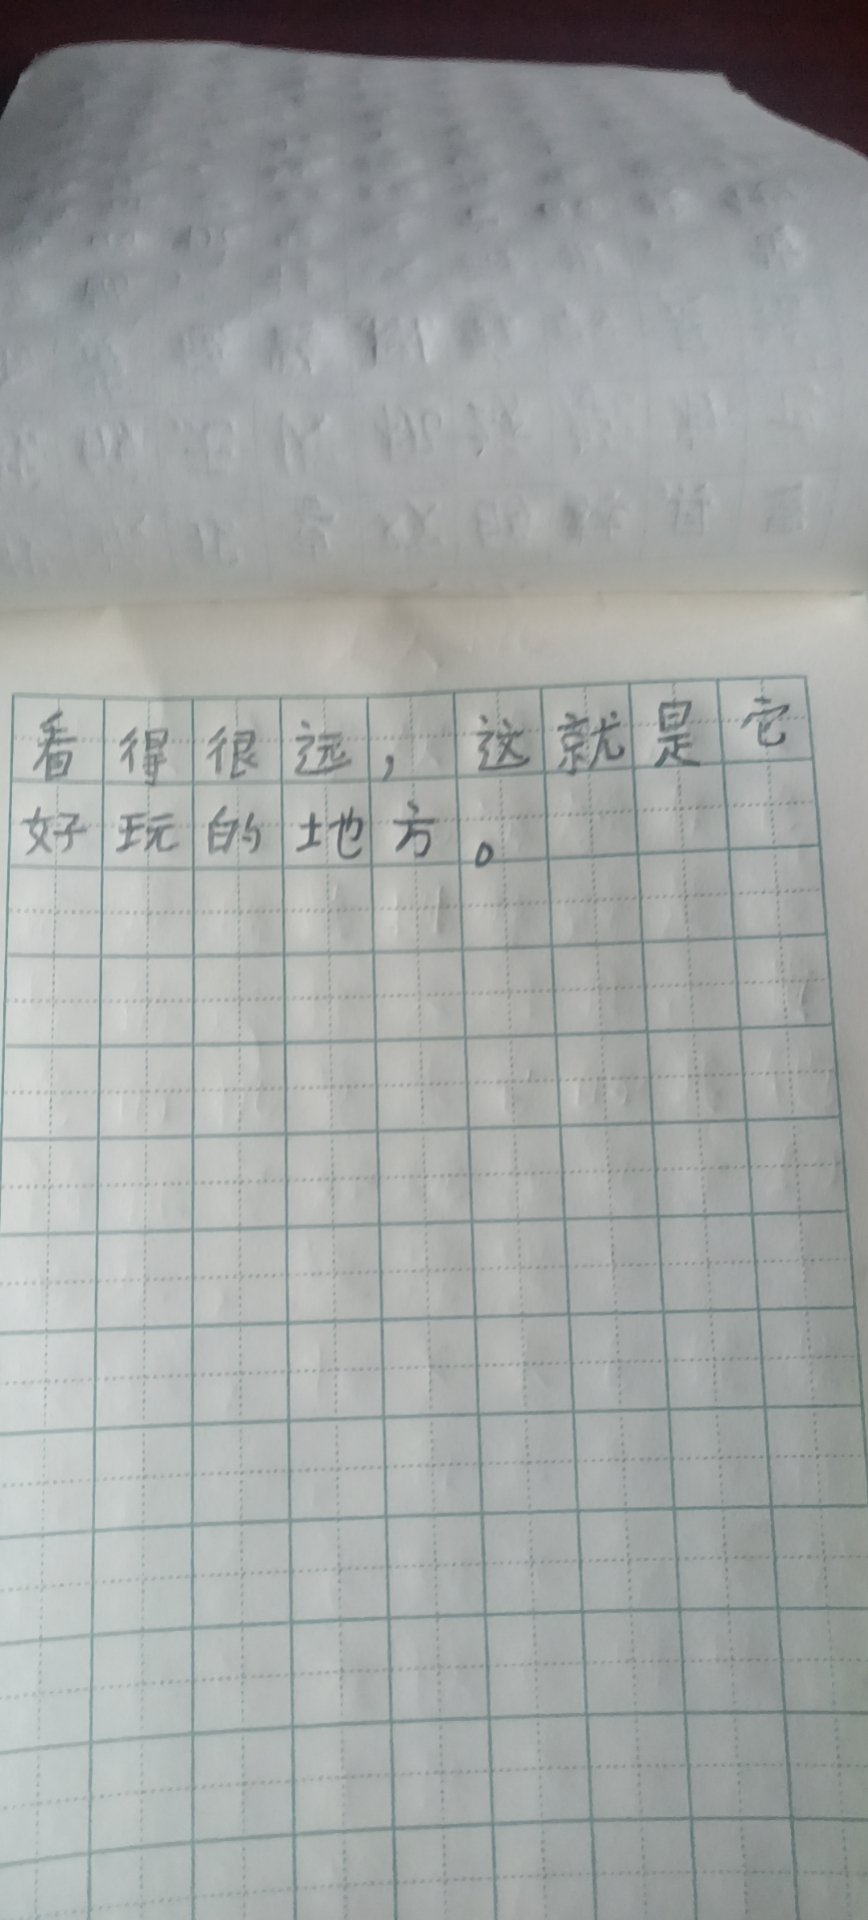 看得很远，这就是它
好玩的地方。